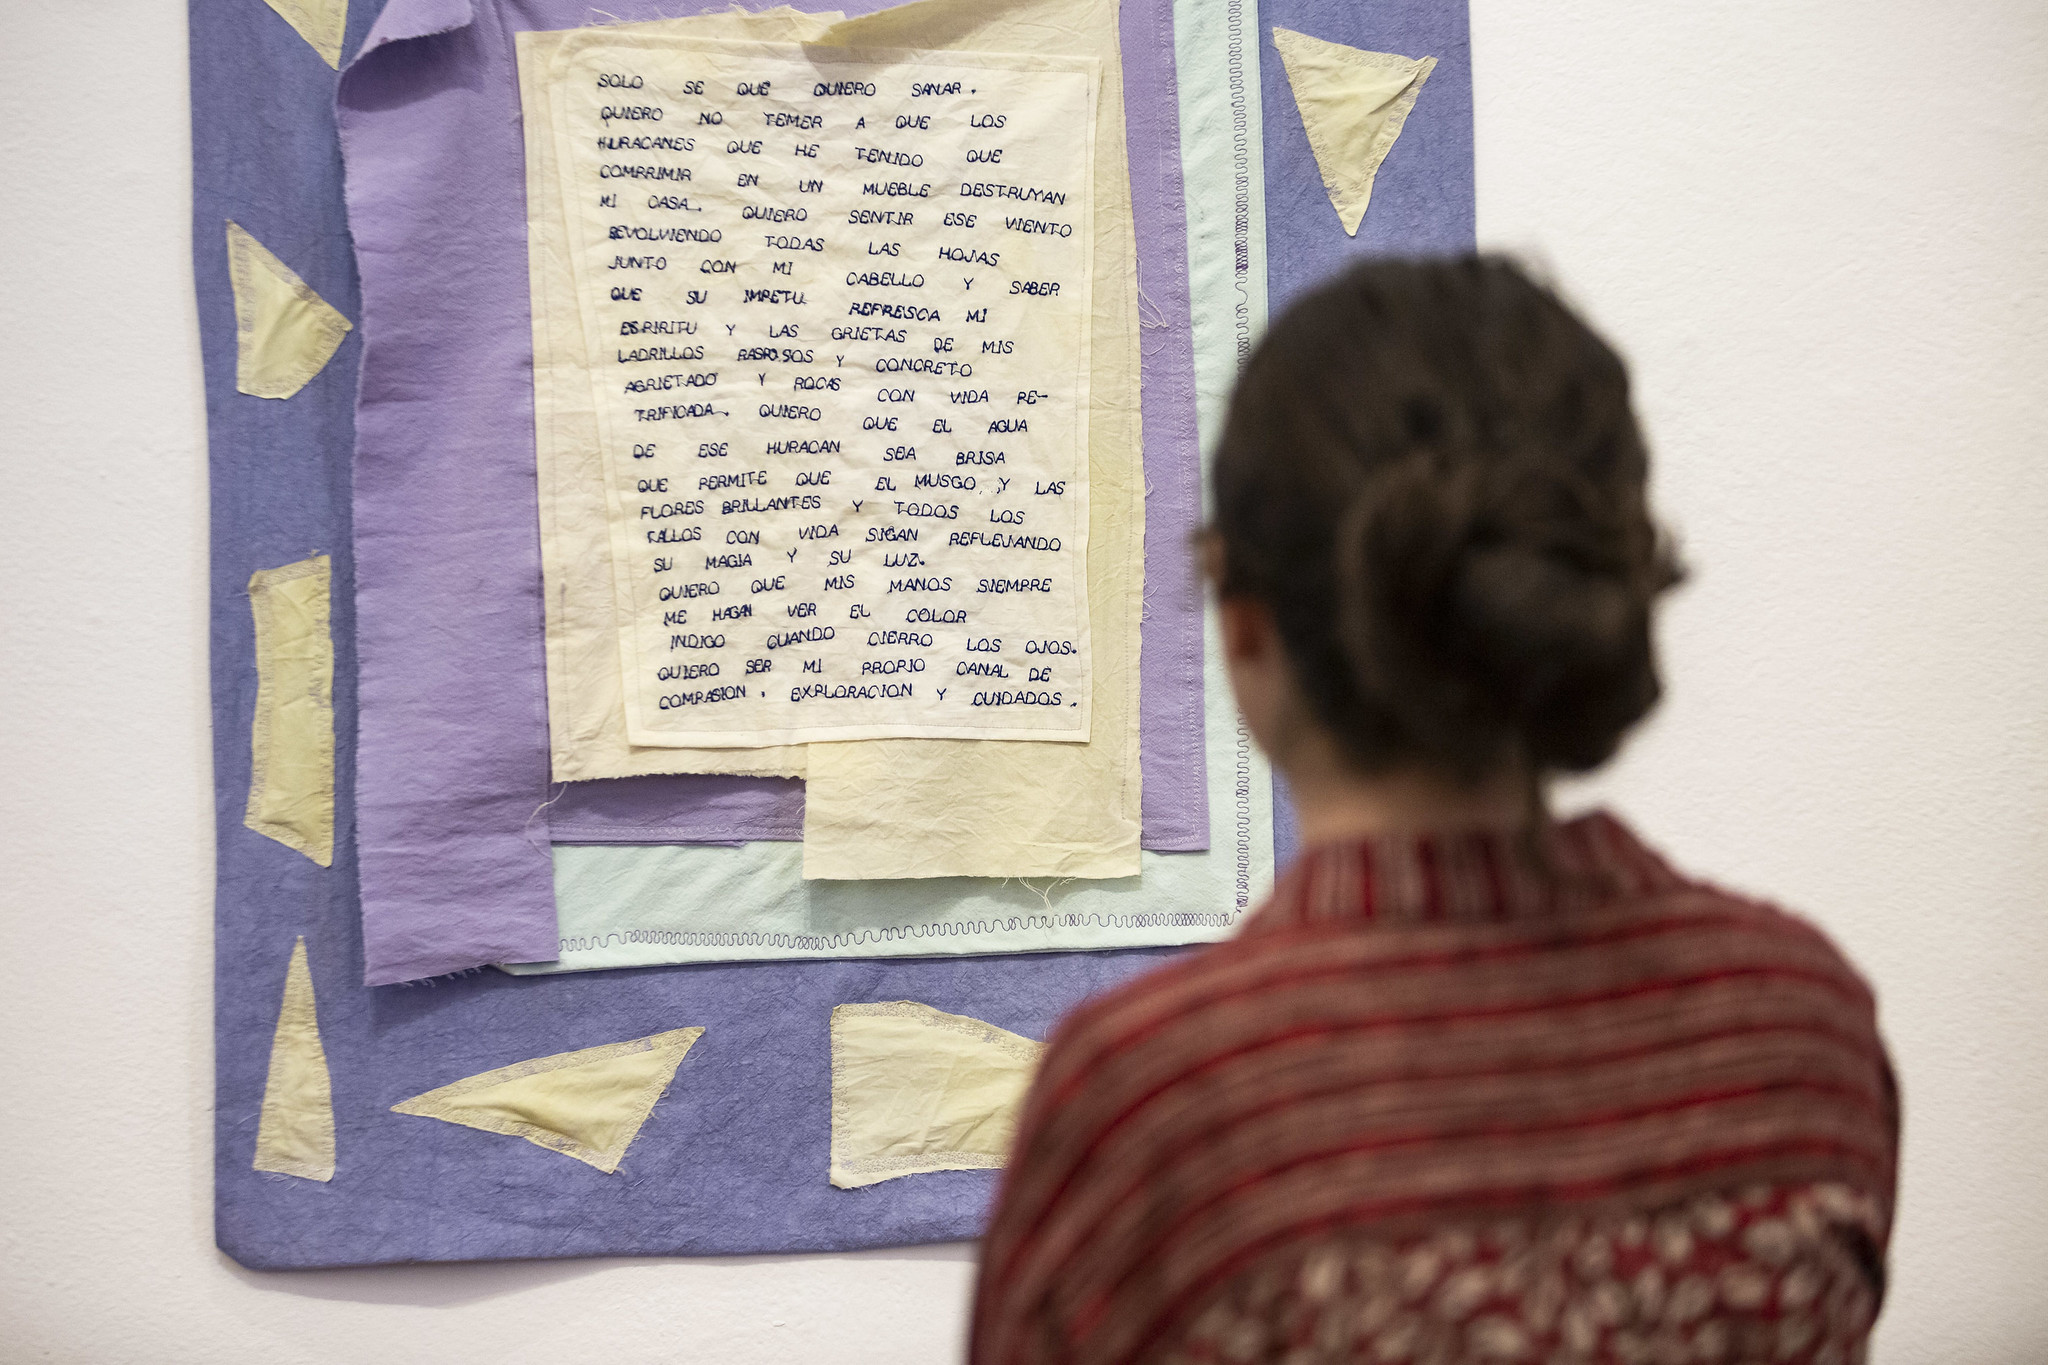 SOLO SE QUE QUIERO SANAR.
QUIERO NO TEMER A QUE LOS
HURACANES QUE HE TENIDO QUE
COMPRIMIR EN UN MUEBLE DESTRUYAN
MI CASA. QUIERO SENTIR ESE VIENTO
REVOLVIENDO TODAS LAS HOJAS
JUNTO CON MI CABELLO Y SABER
QUE SU IMPETU REFRESCA MI
ESPIRITU Y LAS GRIETAS DE MIS
LADRILLOS RASPOSOS Y CONCRETO
AGRIETADO Y ROCAS CON VIDA PE-
TRIFICADA. QUIERO QUE EL AGUA
DE ESE HURACAN SEA BRISA
QUE PERMITE QUE EL MUSGO, Y LAS
FLORES BRILLANTES Y TODOS LOS
TALLOS CON VIDA SIGAN REFLEJANDO
SU MAGIA Y SU LUZ.
QUIERO QUE MIS MANOS SIEMPRE
ME HAGAN VER EL COLOR
INDIGO CUANDO CIERRO LOS OJOS.
QUIERO SER MI PROPIO CANAL DE
COMPASION, EXPLORACION Y CUIDADOS.